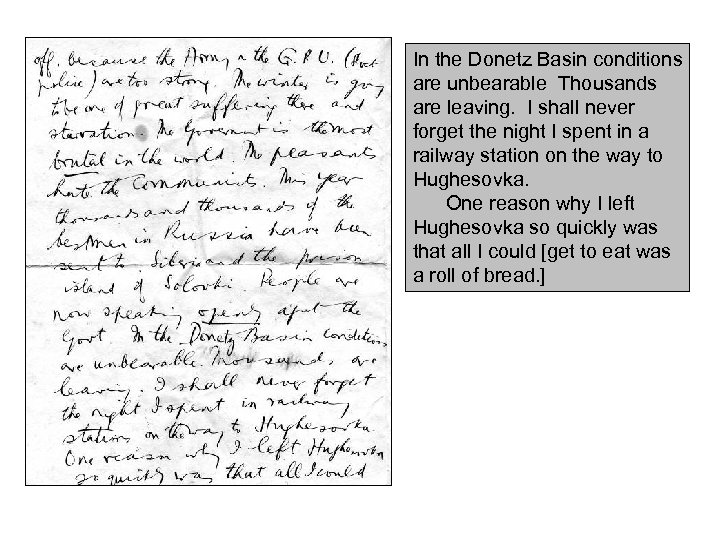 off, because the Army & the G.P.U. (Secret
police) are too strong. The winter is going
to be one of great suffering there and
starvation. The Government is the most
brutal in the world. The peasants
hate the Communists. This year
thousands and thousands of the
best men in Russia have been
sent to Siberia and the prison
island of Solovki. People are
now speaking openly against the
Govt. In the Donetz Basin conditions
are unbearable. Thousands are
leaving. I shall never forget
the night I spent in railway
station on the way to Hughesovka.
One reason why I left Hughesovka
so quickly was that all I could
In the Donetz Basin conditions
are unbearable  Thousands
are leaving.  I shall never
forget the night I spent in a
railway station on the way to
Hughesovka.
One reason why I left
Hughesovka so quickly was
that all I could [get to eat was
a roll of bread.]